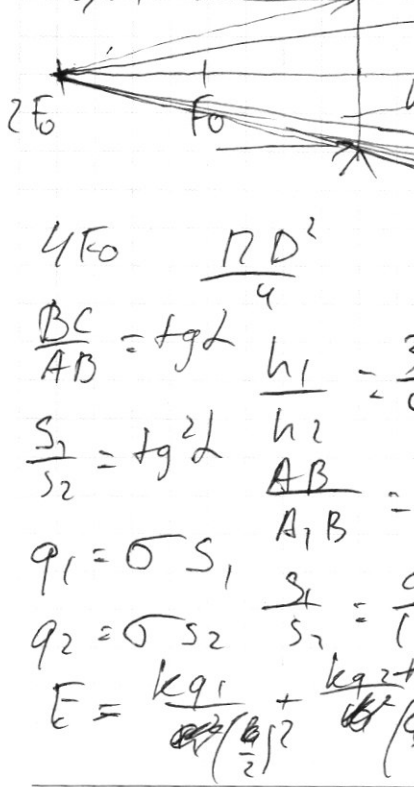 2F₀ F₀
4F₀ πD²/4
BC/AB = tgα
h₁/h₂ =
S₁/S₂ = tg²α
AB/A₁B =
q₁ = σ S₁
S₁/S₂ =
q₂ = σ S₂
E = kq₁/( /2)² + kq₂